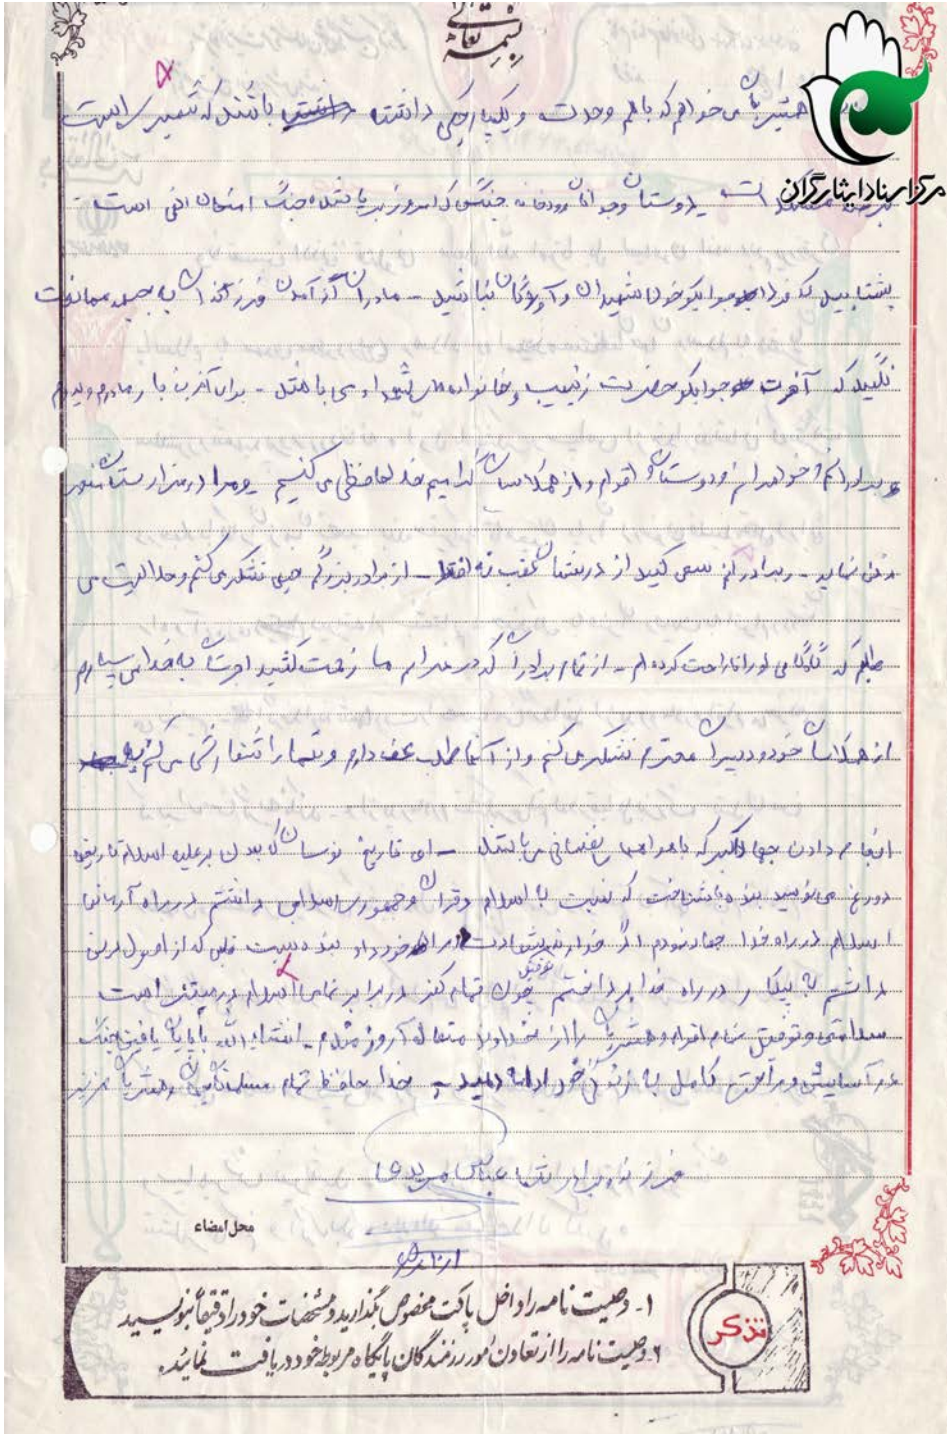 بسمه تعالی
مرکز اسناد ایثارگران
همشیریان می خواهم که با هم وحدت و یکپارچگی داشته باشند که
دوستان و جوانان جنگی که امروز بر پا شده جنگ امتحان الهی است -
بشتابید که فردا جوابگو خون شهیدان و آوارگان نباشید - مادران از آمدن فرزندان به جبهه ممانعت
نکنید که آخرت جوابگو حضرت زینب و خانواده های شهدا می باشند - برای آخرین بار مادرم و پدرم
و برادرانم و خواهرانم و دوستان و اقوام و از همکلاسان گرامیم خداحافظی می کنیم و مرا در مزارستان
دفن نمایید - برادرانم سعی کنید از درستان عقب نه افتد - از برادر بزرگم خیلی تشکر می کنم و حلالیت می
طلبم که گاهی او را ناراحت کرده ام - از تمام برادران که در ما زحمت کشید اجرشان به خدا می سپارم
از همکلاسان خود و دبیران محترم تشکر می کنم و از آنها طلب عفو دارم و شما را سفارش می کنم به
انجام دادن جهاد اکبر که با هواهای نفسانی می باشد - ای تاریخ نویسان که بعدن بر علیه اسلام تاریخ
دروغ می نویسید بنده با شناخت که نسبت با اسلام و قرآن و جمهوری اسلامی داشتم در راه آرمانها
اسلام در راه خدا جهاد نمودم اگر خدا شهادت خود داد بنده نیت قلبی که از اصول دین
داشتم به پیکار در راه خدا پرداختم چون تمام کفر در برابر تمامی اسلام است
سلامتی و توفیق تمام اقوام و همشهریان را از خداوند متعال آرزومندم - انشاءالله با پایان یافتن جنگ
در آسایش و راحتی کامل به زندگی خود ادامه دهید - خدا حافظ تمام مسلمانان و همشهریان عزیز
فرزند و برادر شما عباس
محل امضاء
تذکر
۱- وصیت نامه را داخل پاکت مخصوص بگذارید و مشخصات خود را دقیقاً بنویسید
۲- وصیت نامه را از تعاون امور رزمندگان پایگاه مربوطه خود دریافت نمائید.